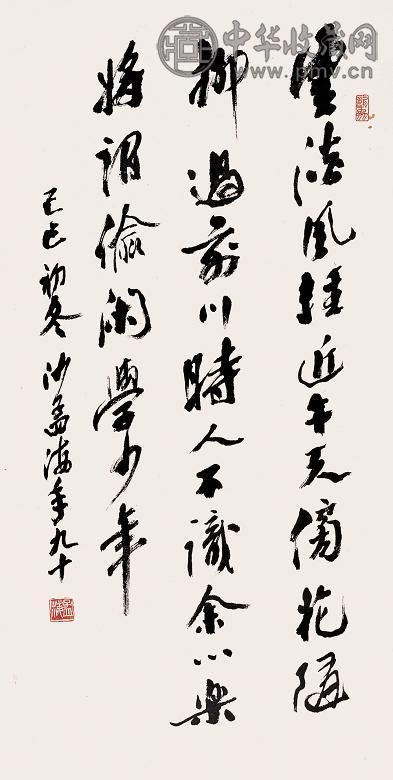 中华收藏网
www.pmv.cn
雲淡風輕近午天傍花隨
柳過前川時人不識余心樂
將謂偷閑學少年
己巳初冬沙孟海年九十